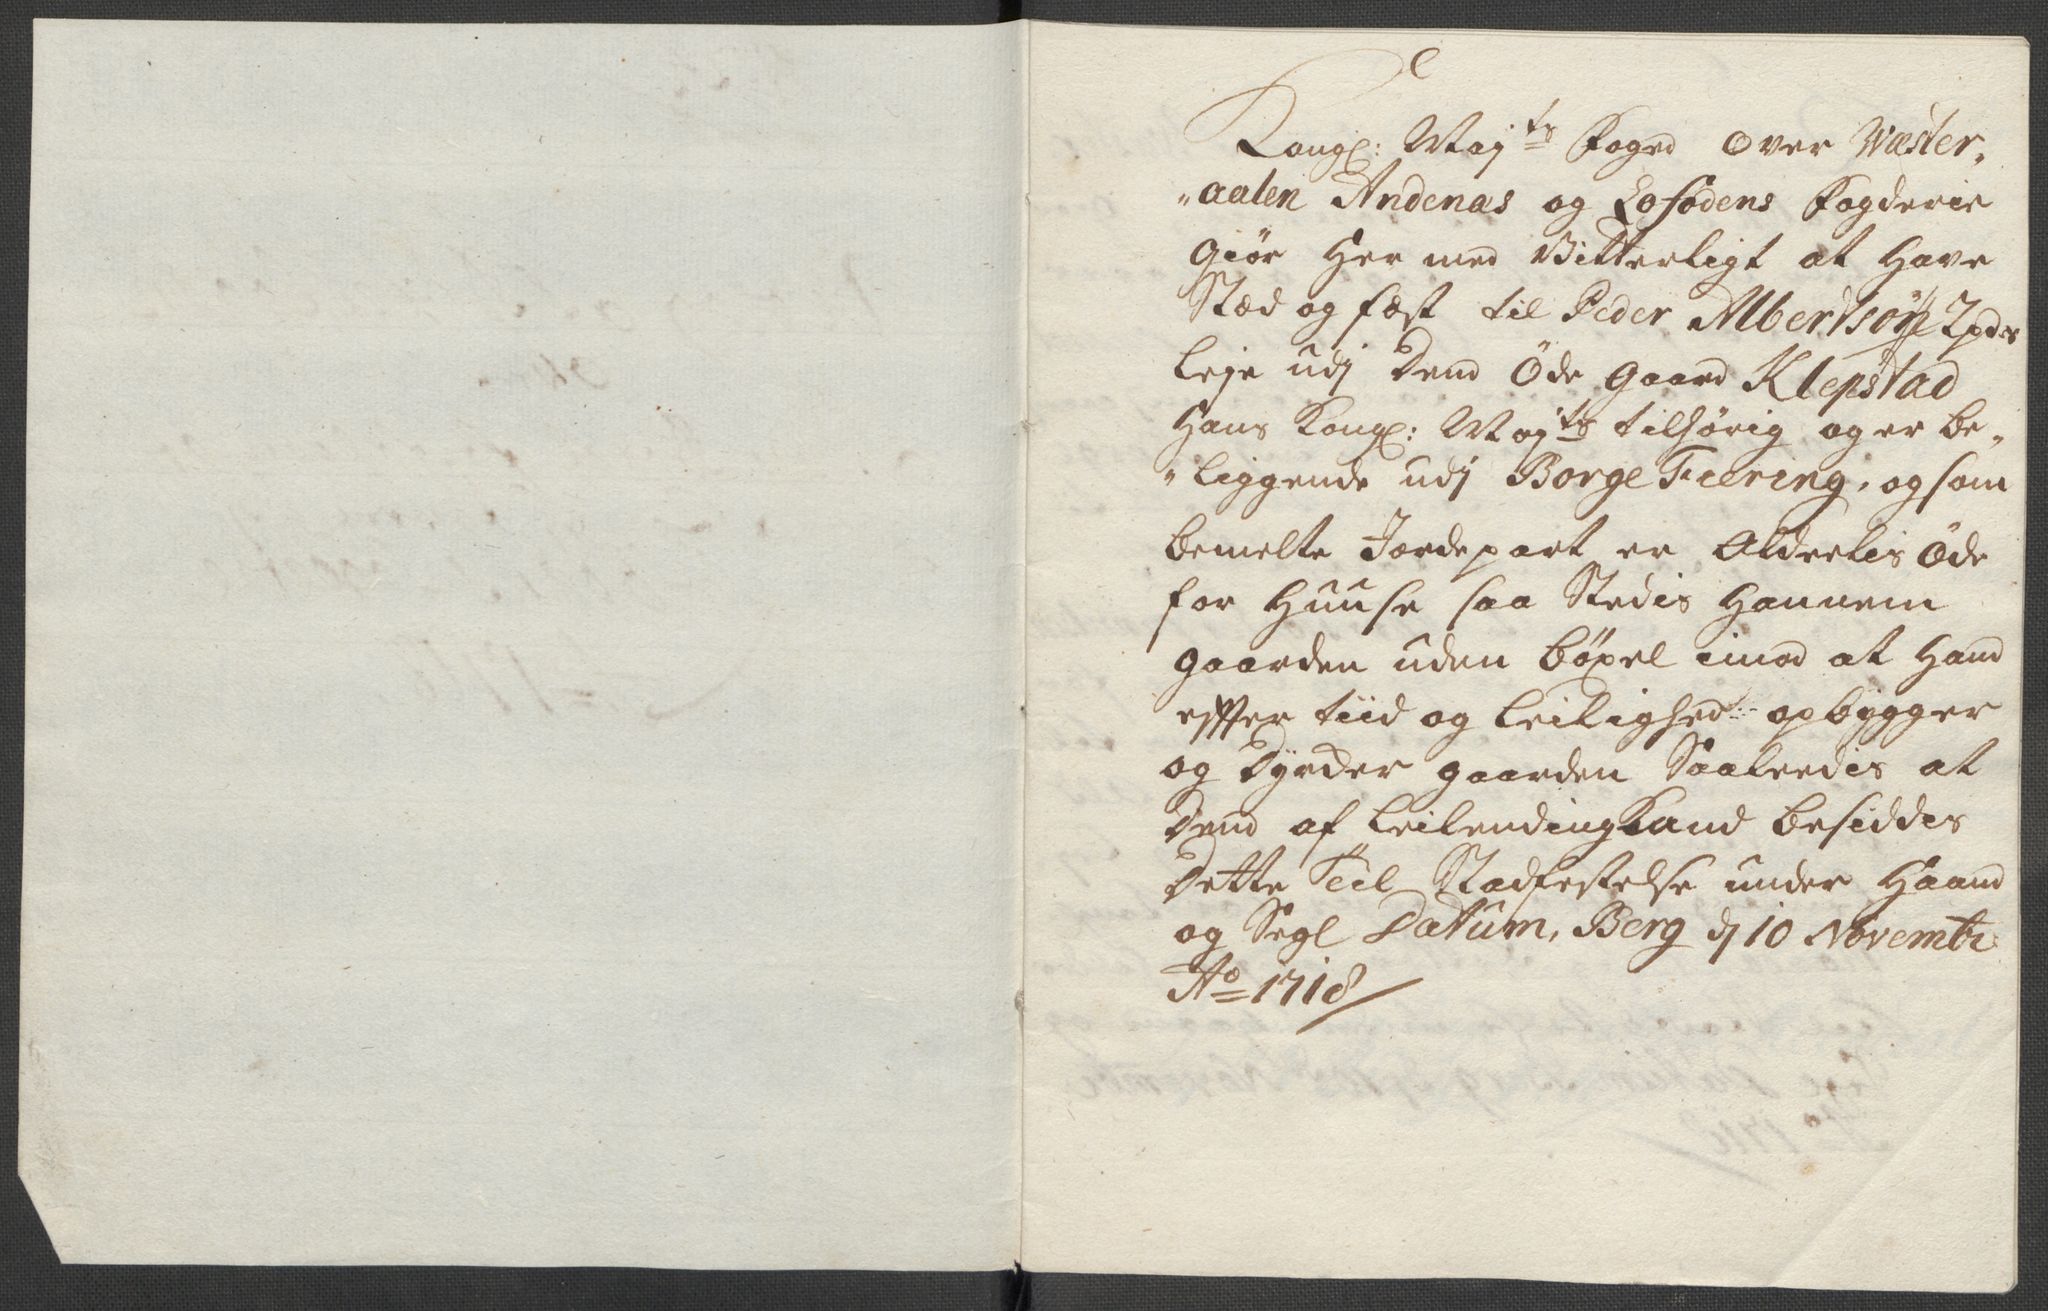 Kongl: Maj:ts Foged over Wæster,
„aalen Andenæs og Lofodens Fogderie
Giør Her med Vitterligt at Have
Stæd og fæst til Peder Albertsøn 2 pds
leje udj dend Öde Gaard Klepstad
Hans Kongl: Maj:ts tilhørig, og er be„
„liggende udj Borge Fiering, og som
bemelte Jordepart er Alderlis Öde
for Huuse saa Stedis Hannem
gaarden uden böxel imod at Hand
effter tiid og leilighed opbygger
og dyrder gaarden Saaledis at
dend af leilending kand besiddis
Dette Till Stadfestelse under Haand
og Segl Datum, Berg dj 10 Novembr:
Ao = 1718